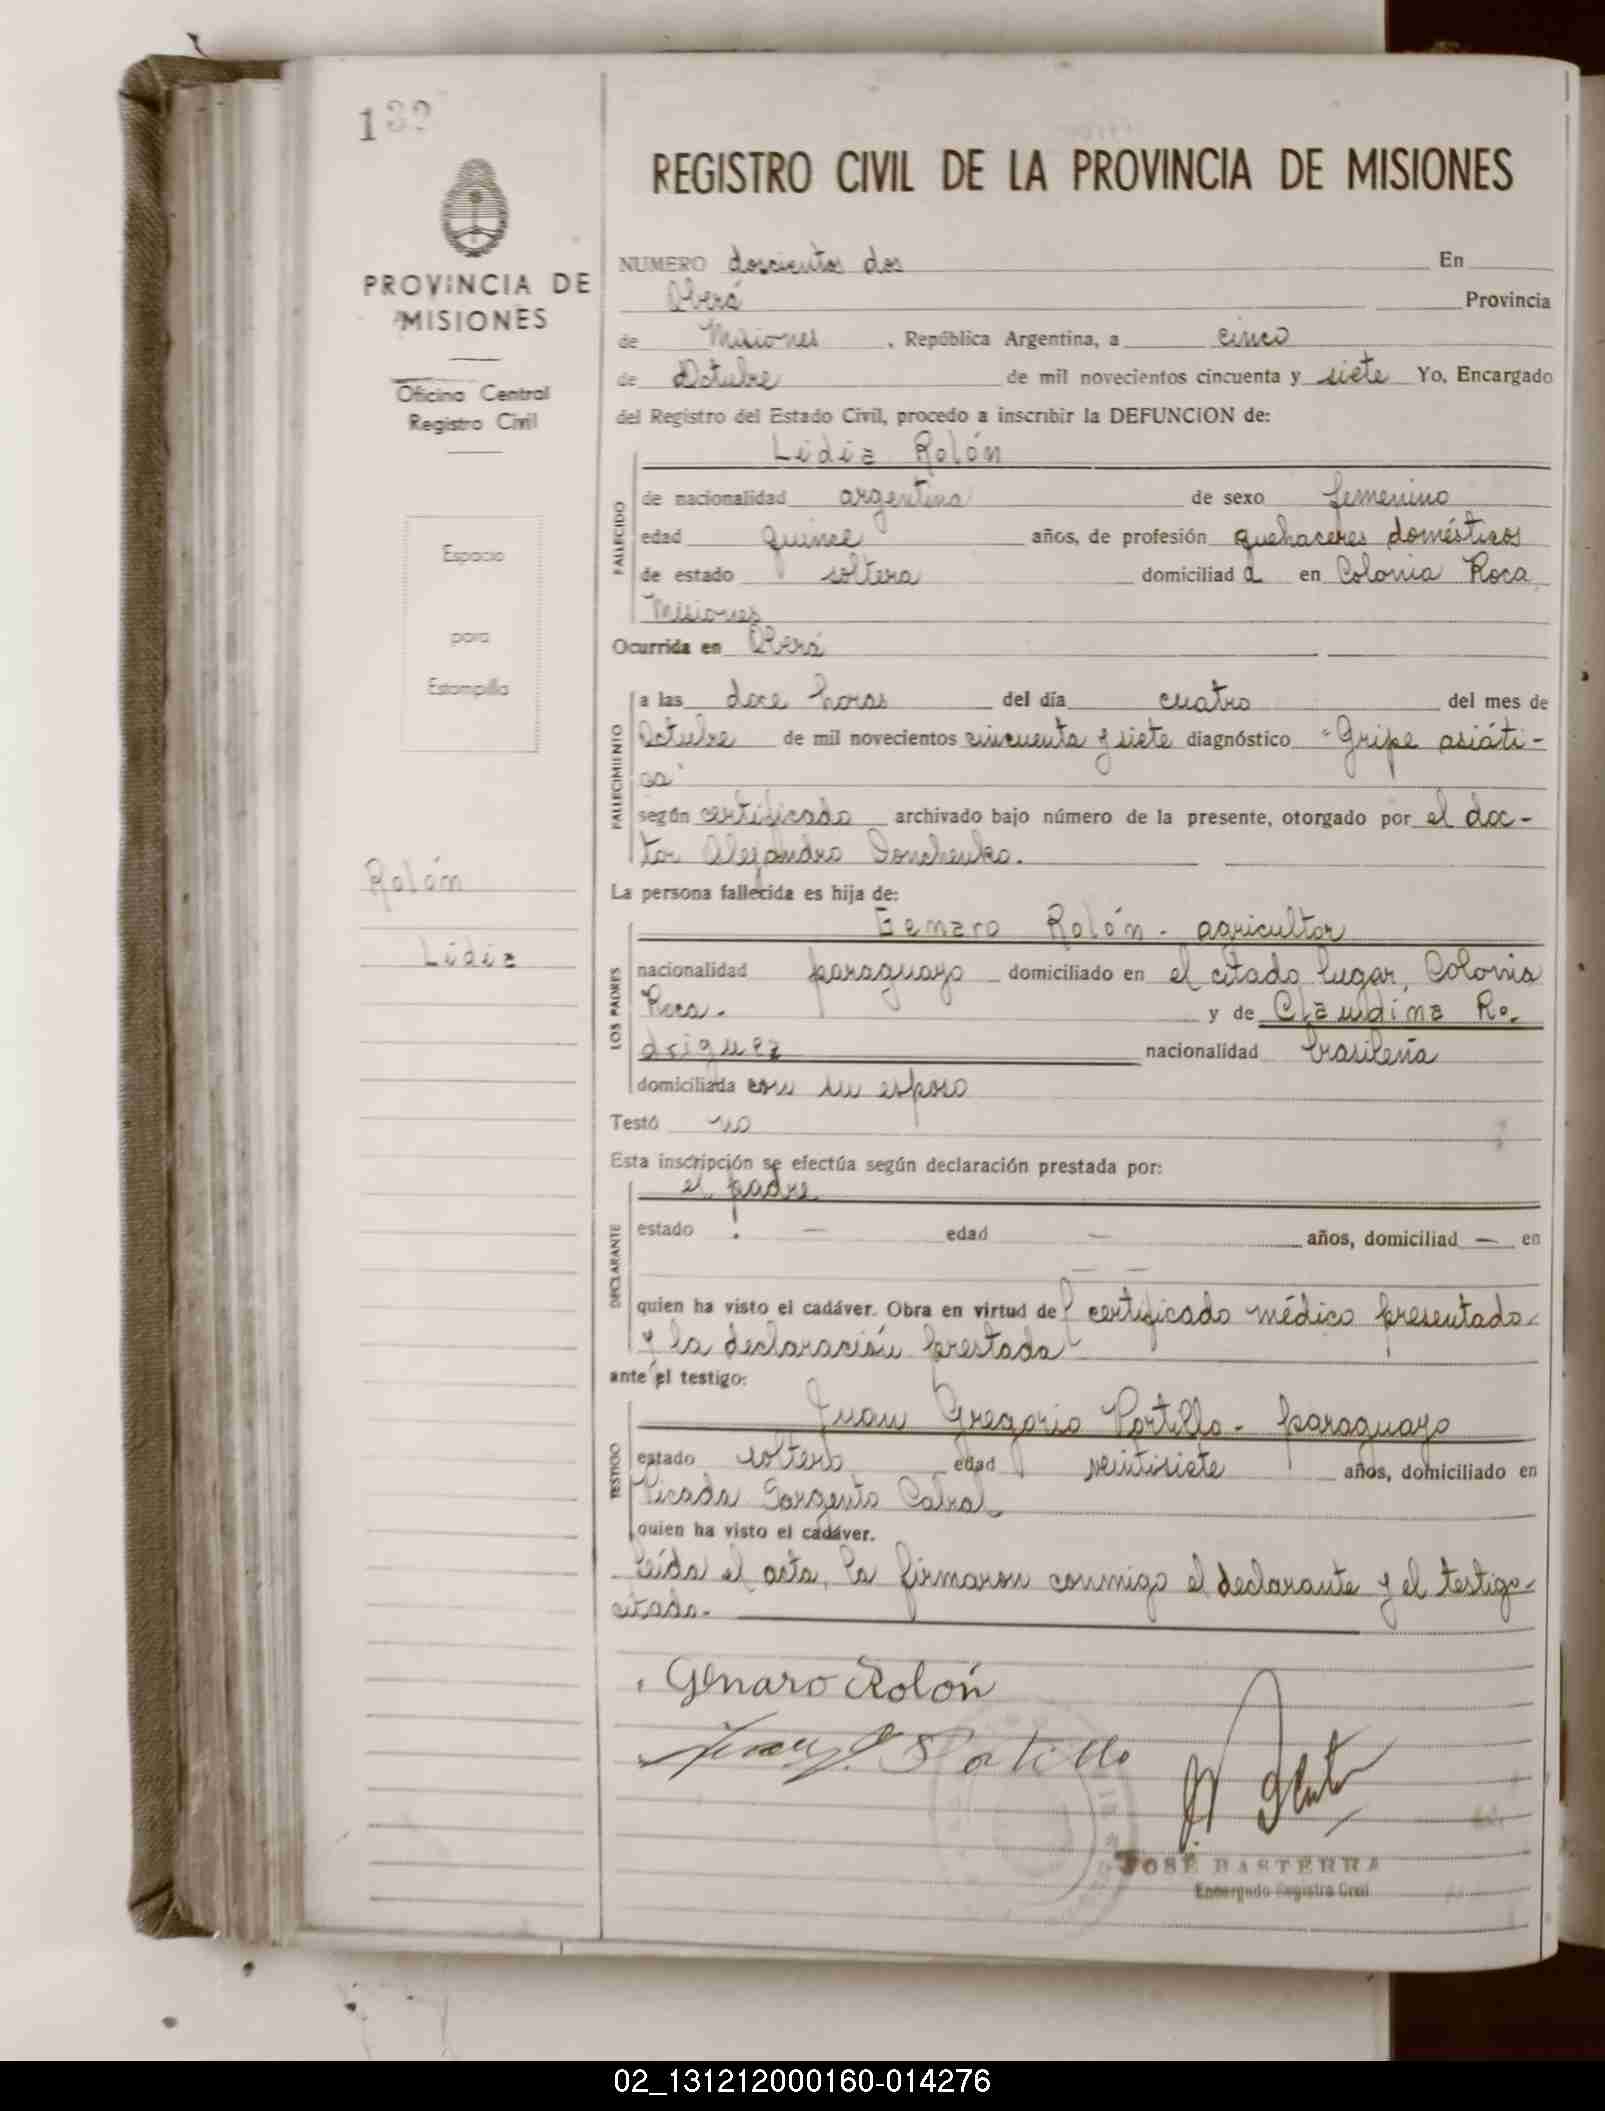 132
PROVINCIA DE
MISIONES
Oficina Central
Registro Civil
Espacio
para
Estampilla
Rolón
Lidia
REGISTRO CIVIL DE LA PROVINCIA DE MISIONES
NUMERO doscientos dos En
Oberá Provincia
de Misiones , República Argentina, a cinco
de Octubre de mil novecientos cincuenta y siete Yo, Encargado
del Registro del Estado Civil, procedo a inscribir la DEFUNCION de:
Lidia Rolón
FALLECIDO
de nacionalidad argentina de sexo femenino
edad quince años, de profesión quehaceres domésticos
de estado soltera domiciliad a en Colonia Roca
Misiones
Ocurrida en Oberá
FALLECIMIENTO
a las doce horas del día cuatro del mes de
Octubre de mil novecientos cincuenta y siete diagnóstico "Gripe asiáti-
ca"
según certificado archivado bajo número de la presente, otorgado por el doc-
tor Alejandro
La persona fallecida es hija de:
LOS PADRES
Genaro Rolón - agricultor
nacionalidad paraguayo domiciliado en el citado lugar, Colonia
Roca. y de Claudina Ro-
driguez nacionalidad brasileña
domiciliada con su esposo
Testó no
Esta inscripción se efectúa según declaración prestada por:
DECLARANTE
el padre
estado — edad — años, domiciliad — en
— —
quien ha visto el cadáver. Obra en virtud del certificado médico presentado
y la declaración prestada
ante el testigo:
TESTIGO
Juan Gregorio Portillo - paraguayo
estado soltero edad veintisiete años, domiciliado en
Picada Sargento Cabral
quien ha visto el cadáver.
Leída el acta, la firmaron conmigo el declarante y el testigo
citado.
Genaro Rolón
Juan G. Portillo
JOSÉ BASTERRA
Encargado Registro Civil
02_131212000160-014276